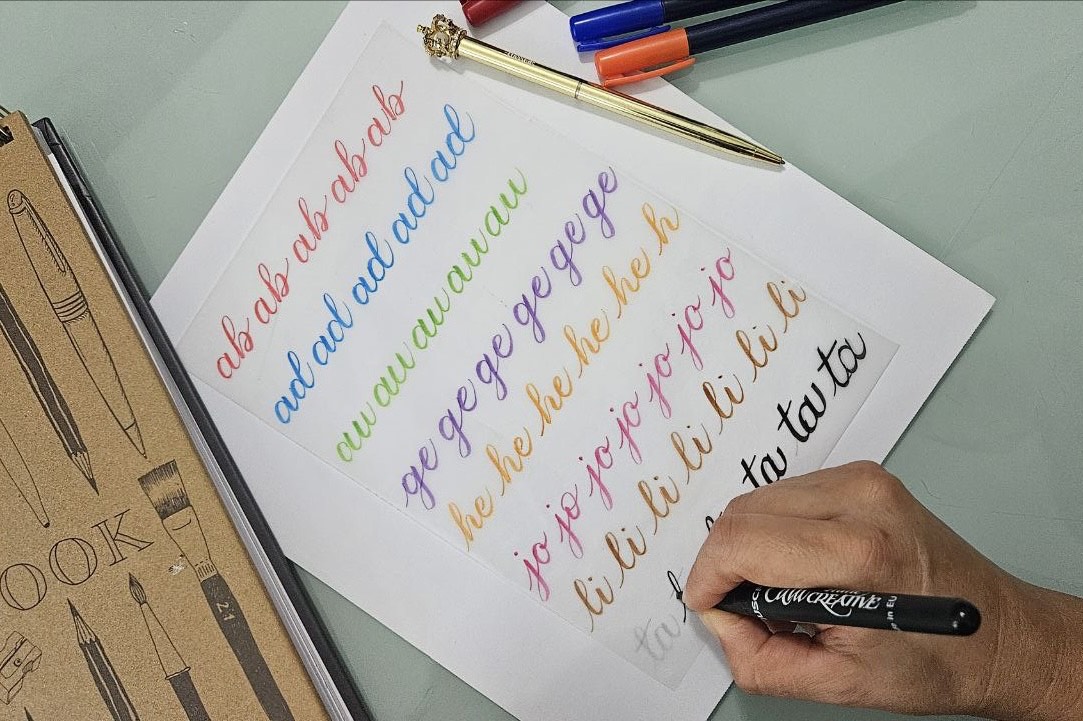 ab ab ab ab ab
ad ad ad ad ad
au au au au au
ge ge ge ge ge ge
he he he he he h
jo jo jo jo jo jo jo
li li li li li li li
ta t ta ta ta
OOK
CalliCREATIVE
in EU